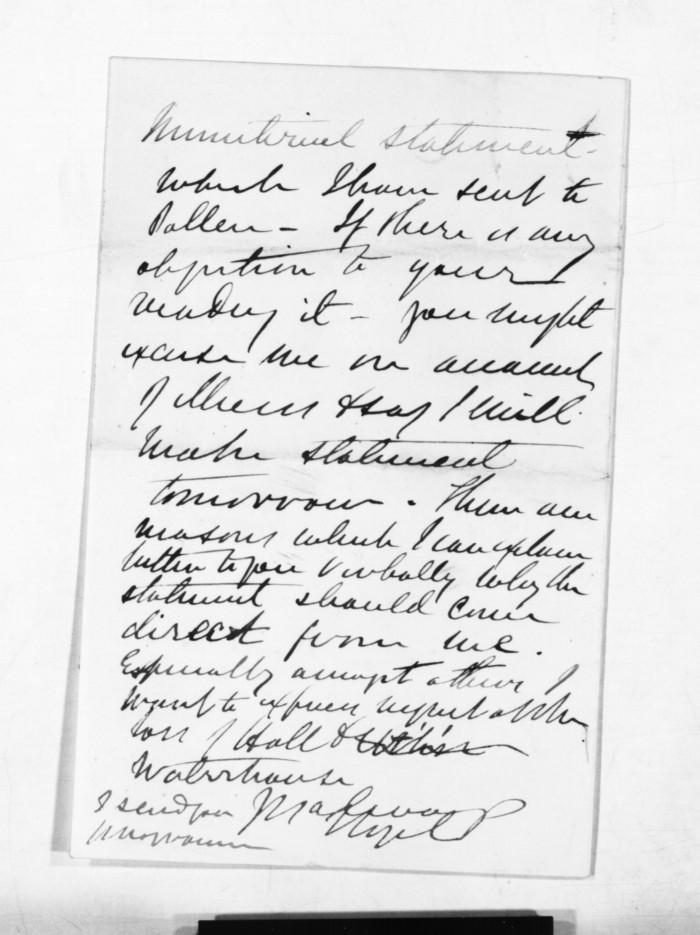 Ministerial statement -
which I have sent to
Pollen - If there is any
objection to your
reading it - you might
excuse me on account
of illness & say I will
make statement
tomorrow. There are
reasons which I can explain
better to you verbally why the
statement should come
direct from me.
Especially amongst others I
want to express regret at the
loss of Hall &
Waterhouse
I send you